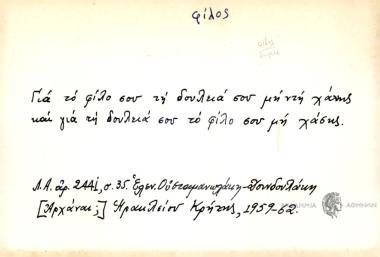 φίλος
Γιά τό φίλο σου τή δουλειά σου μή ντή χάσης
και γιά τή δουλειά σου τό φίλο σου μή χάσης.
Λ.Α. αρ. 2441, σ. 35. Ἑλεν. Οὐσταμανωλάκη-Δουνδουλάκη
[Ἀρχάναι;] Ηρακλείου Κρήτης, 1959-62.
ΑΘΗΝΩΝ